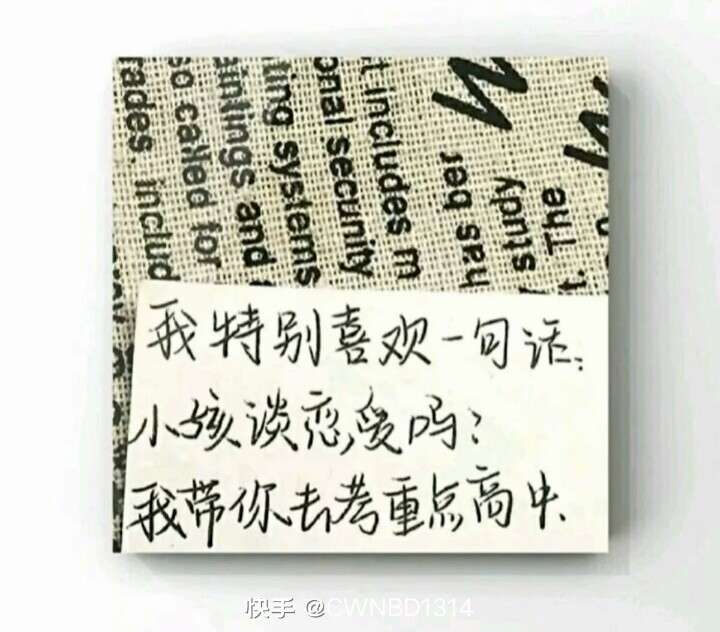 rades. includ
so called for
aintings and
ting systems
onal security
t includes m
has ber
study
t. The
W
我特别喜欢一句话:
小孩谈恋爱吗?
我带你去考重点高中.
快手 @CWNBD1314